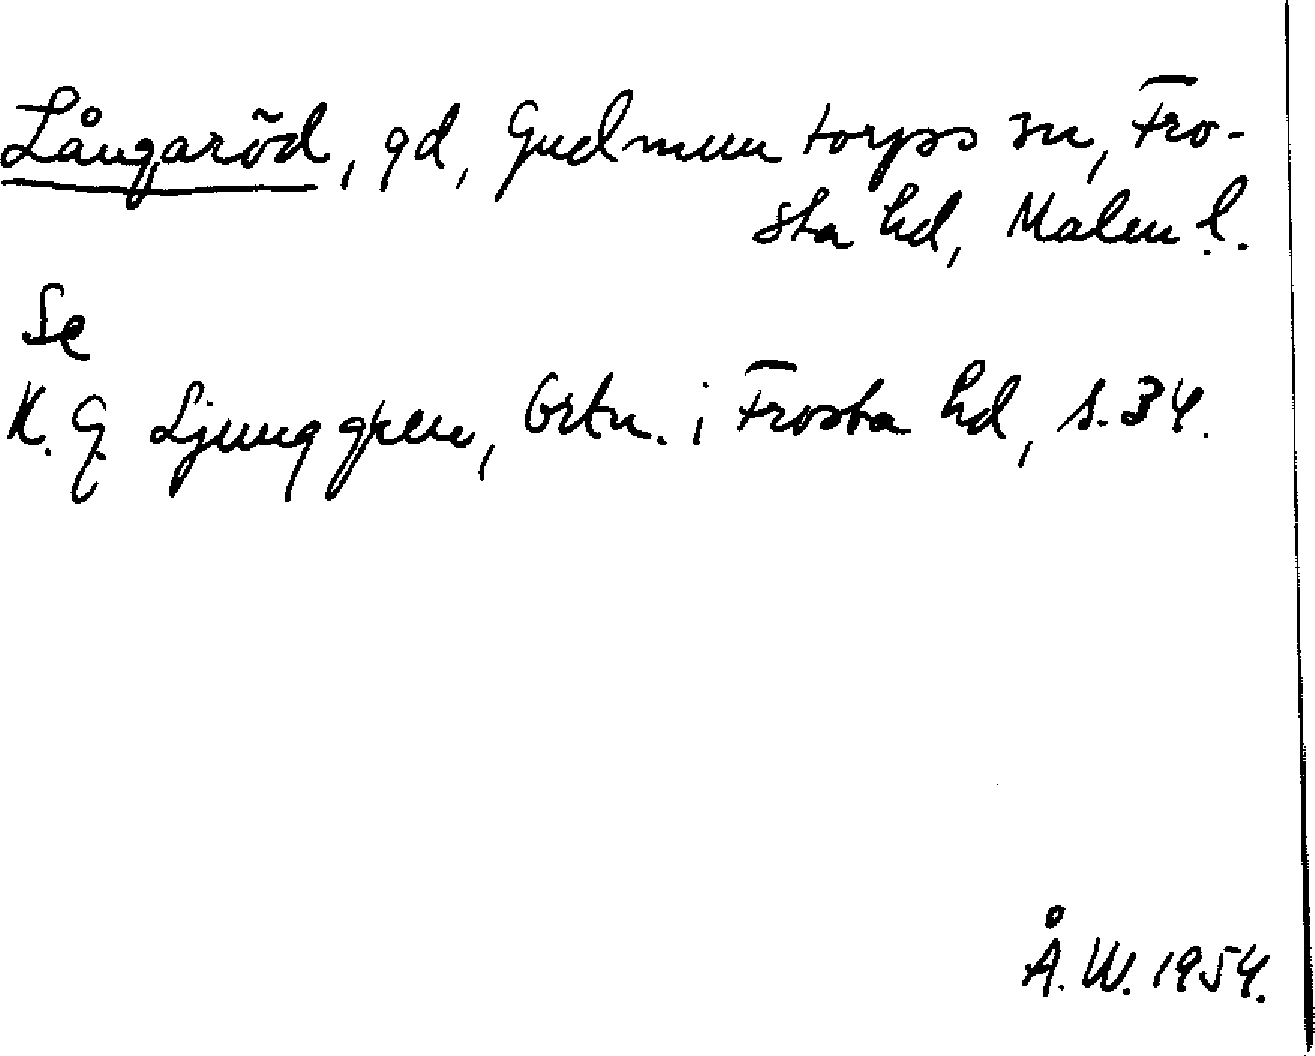 Långaröd, gd, Gudmuntorps sn, Fro-
sta hd, Malm.l.
Se
K. G. Ljunggren, Ortn. i Frosta hd, s. 34.
Å. W. 1954.